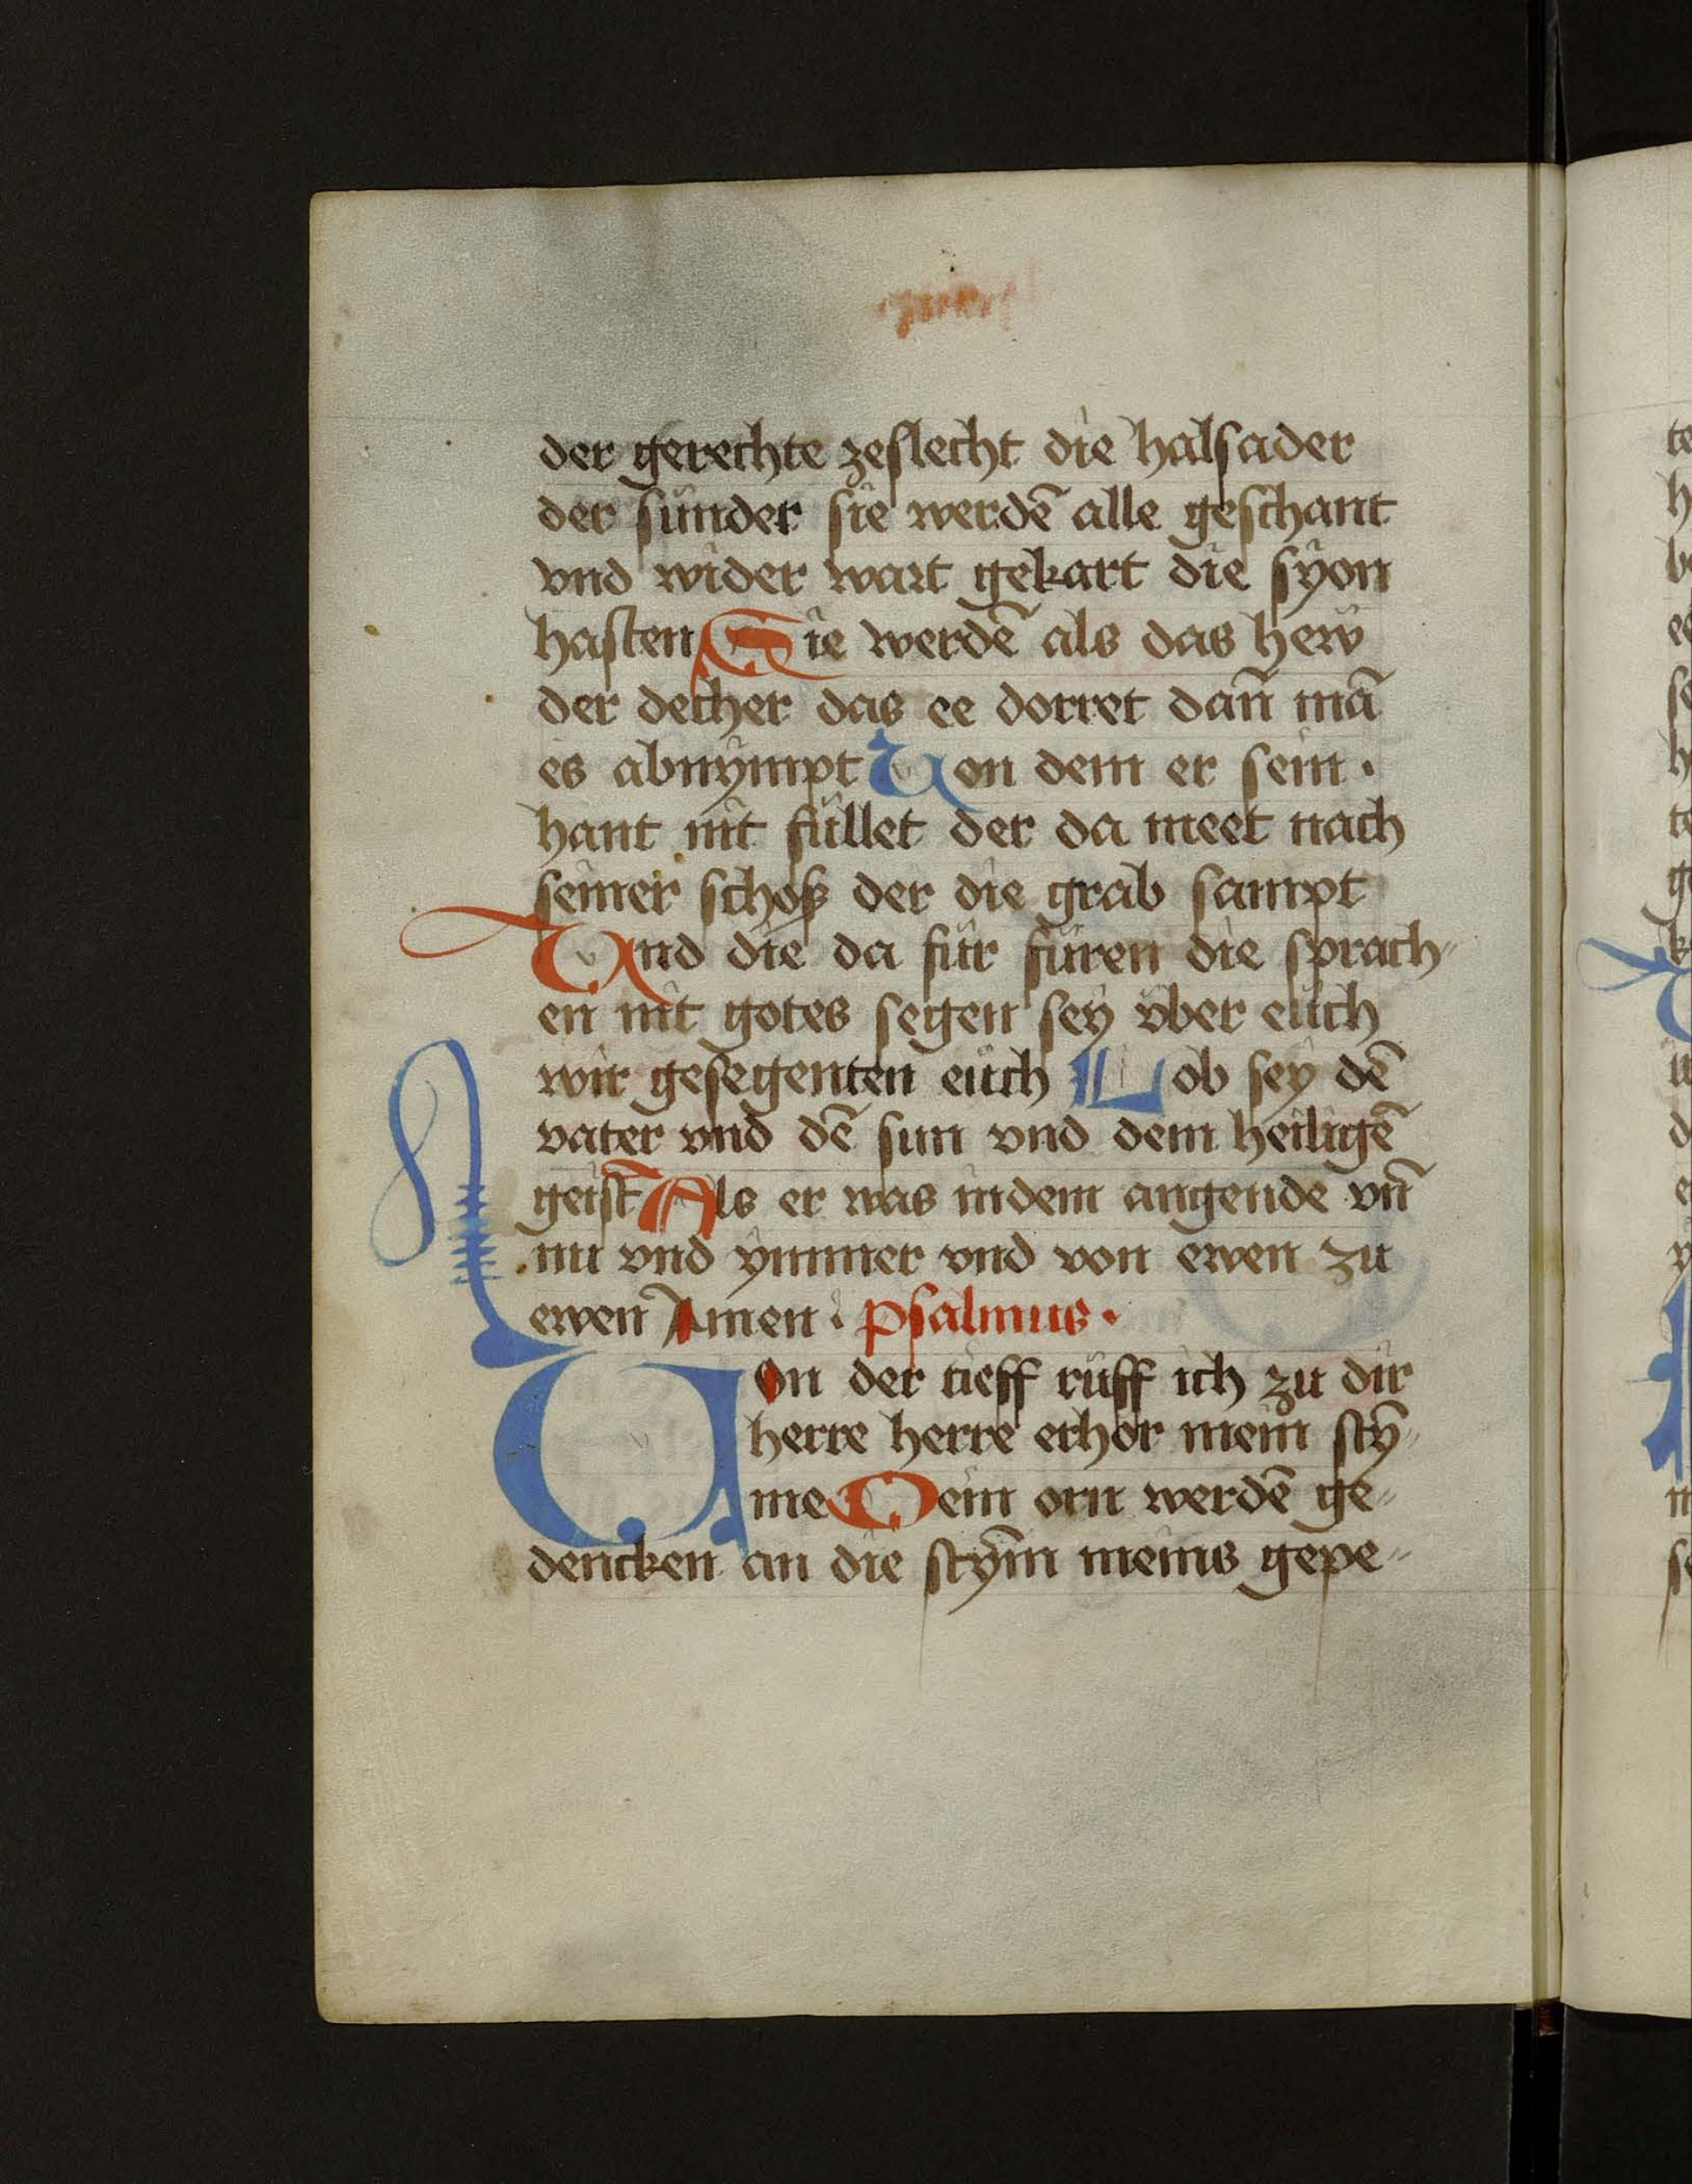 der gerechte zeslecht die halsader
der sünder sie werdē alle geschant
vnd wider wart gekart die syon
hasten Sie werdē als das hew
der decher das ee dorret dan̄ mā
es abnympt Von dem er sein ·
hant nit füllet der da meet nach
seiner schoß der die grab sampt
Vnd die da für füren die sprach〃
en nit gotes segen sey über eüch
wir gesegenten eüch Lob sey dē
vater vnd dē sun vnd dem heiligē
geist Als er was indem angende vn̄
nu vnd ymmer vnd von ewen zu
ewen Amen · psalmus ·
Von der tieff rüff ich zu dir
herre herre erhör mein stȳ〃
me Dein orn werdē ge〃
dencken an die stym̄ meins gepe〃